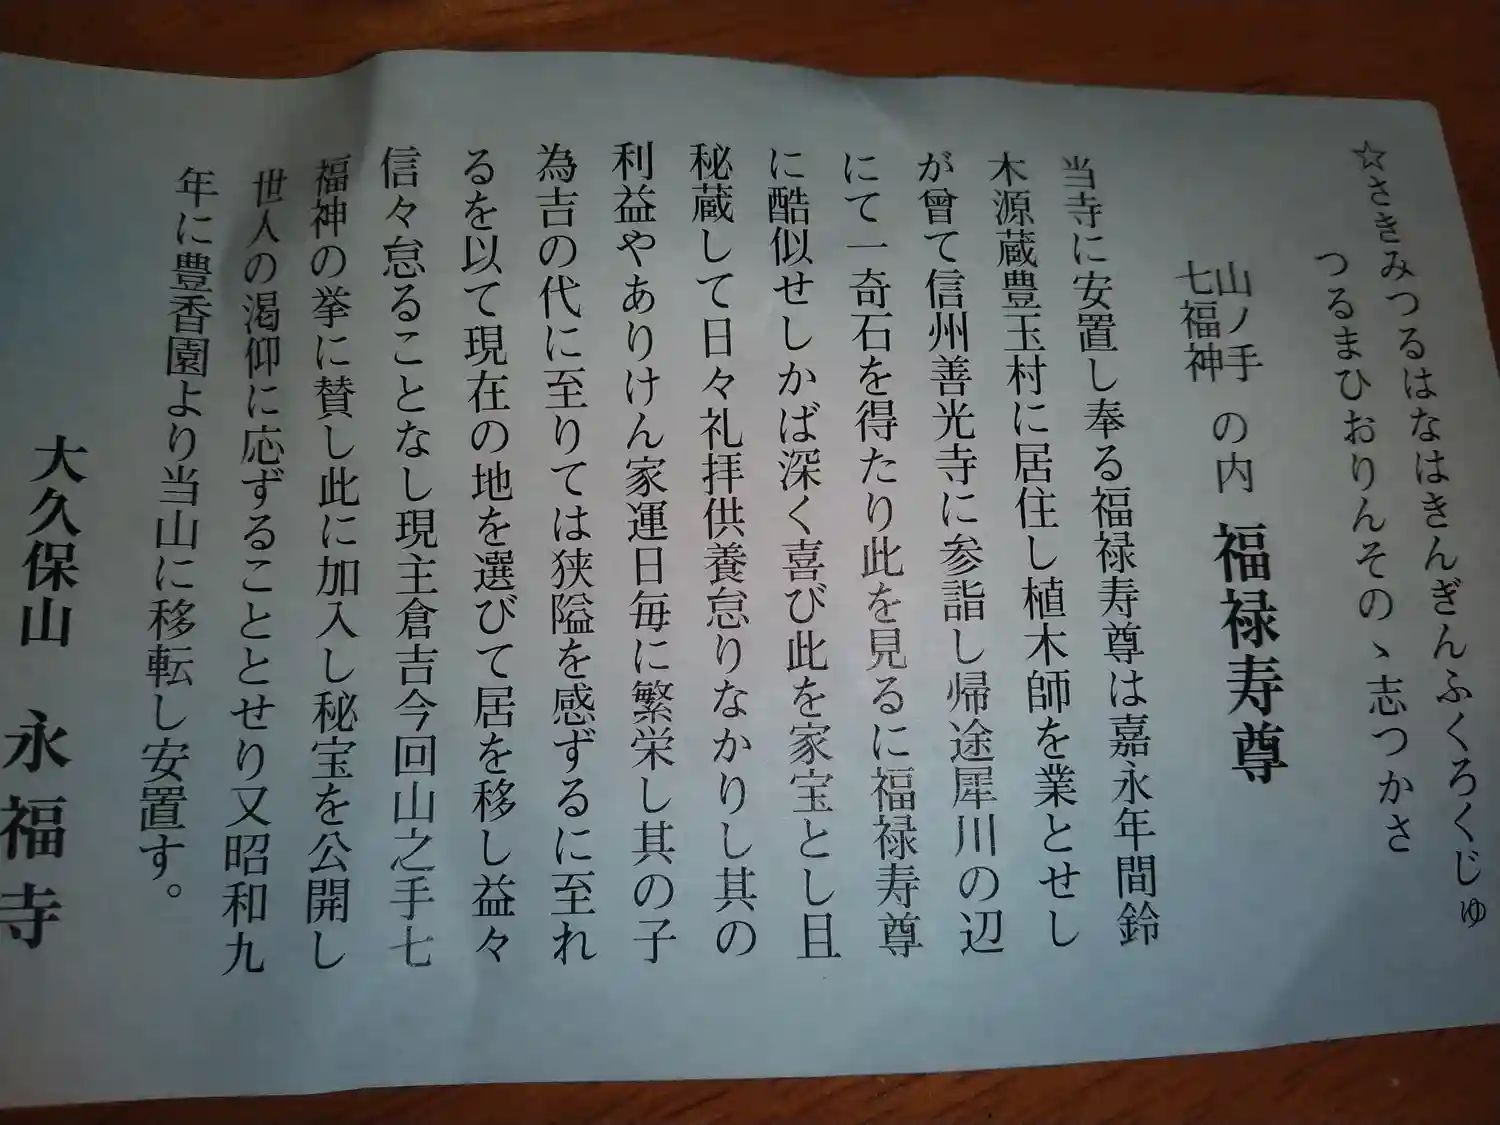 ☆さきみつるはなはきんぎんふくろくじゅ
つるまひおりんそのゝ志つかさ
山ノ手
七福神
の内 福禄寿尊
当寺に安置し奉る福禄寿尊は嘉永年間鈴
木源蔵豊玉村に居住し植木師を業とせし
が曾て信州善光寺に参詣し帰途犀川の辺
にて一奇石を得たり此を見るに福禄寿尊
に酷似せしかば深く喜び此を家宝とし且
秘蔵して日々礼拝供養怠りなかりし其の
利益やありけん家運日毎に繁栄し其の子
為吉の代に至りては狭隘を感ずるに至れ
るを以て現在の地を選びて居を移し益々
信々怠ることなし現主倉吉今回山之手七
福神の挙に賛し此に加入し秘宝を公開し
世人の渇仰に応ずることとせり又昭和九
年に豊香園より当山に移転し安置す。
大久保山 永福寺